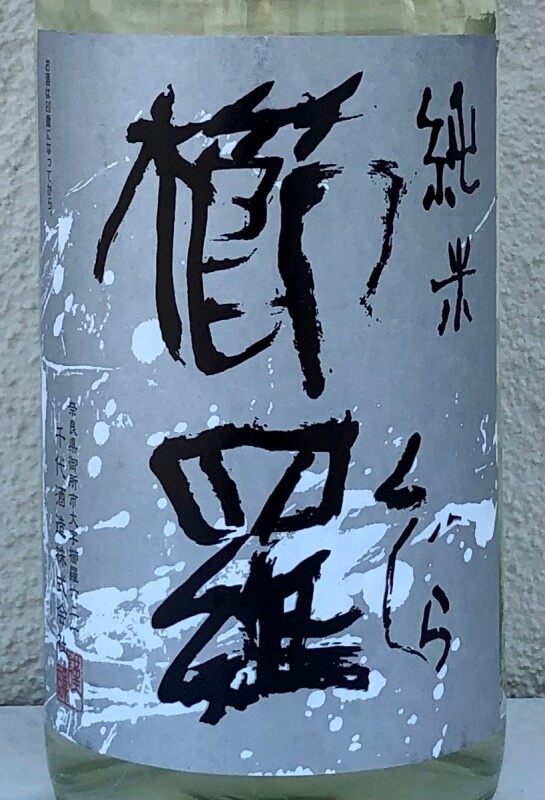 純米
くじら
櫛羅
お酒は20歳になってから。
奈良県御所市大字櫛羅
千代酒造株式会社